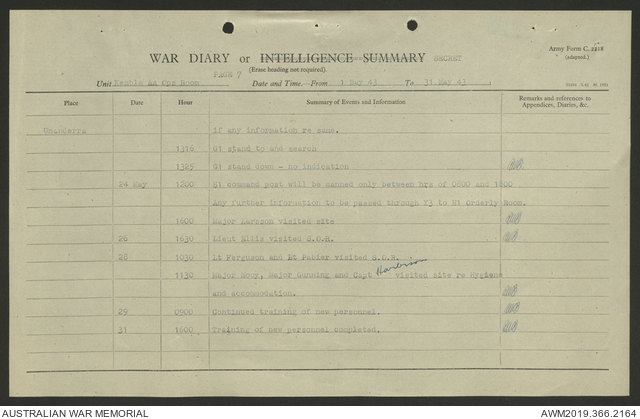 WAR DIARY or INTELLIGENCE SUMMARY SECRET
Army Form C. 2118
(adapted.)
PAGE 7
(Erase heading not required).
Unit Kembla AA Ops Room Date and Time.—From 1 May 43 To 31 May 43
Place Date Hour Summary of Events and Information Remarks and references to Appendices, Diaries, &c.
Unanderra if any information re same.
1316 G1 stand to and search
1325 G1 stand down - no indication
24 May 1200 H1 command post will be manned only between hrs of 0800 and 1800
Any further information to be passed through F3 to H1 Orderly Room.
1600 Major Larsson visited site
26 1630 Lieut Ellis visited G.O.R.
28 1030 Lt Ferguson and Lt Pabier visited G.O.R.
1130 Major Mooy, Major Gunning and Capt Harbison visited site re Hygiene
and accommodation.
29 0900 Continued training of new personnel.
31 1600 Training of new personnel completed.
AUSTRALIAN WAR MEMORIAL AWM2019.366.2164